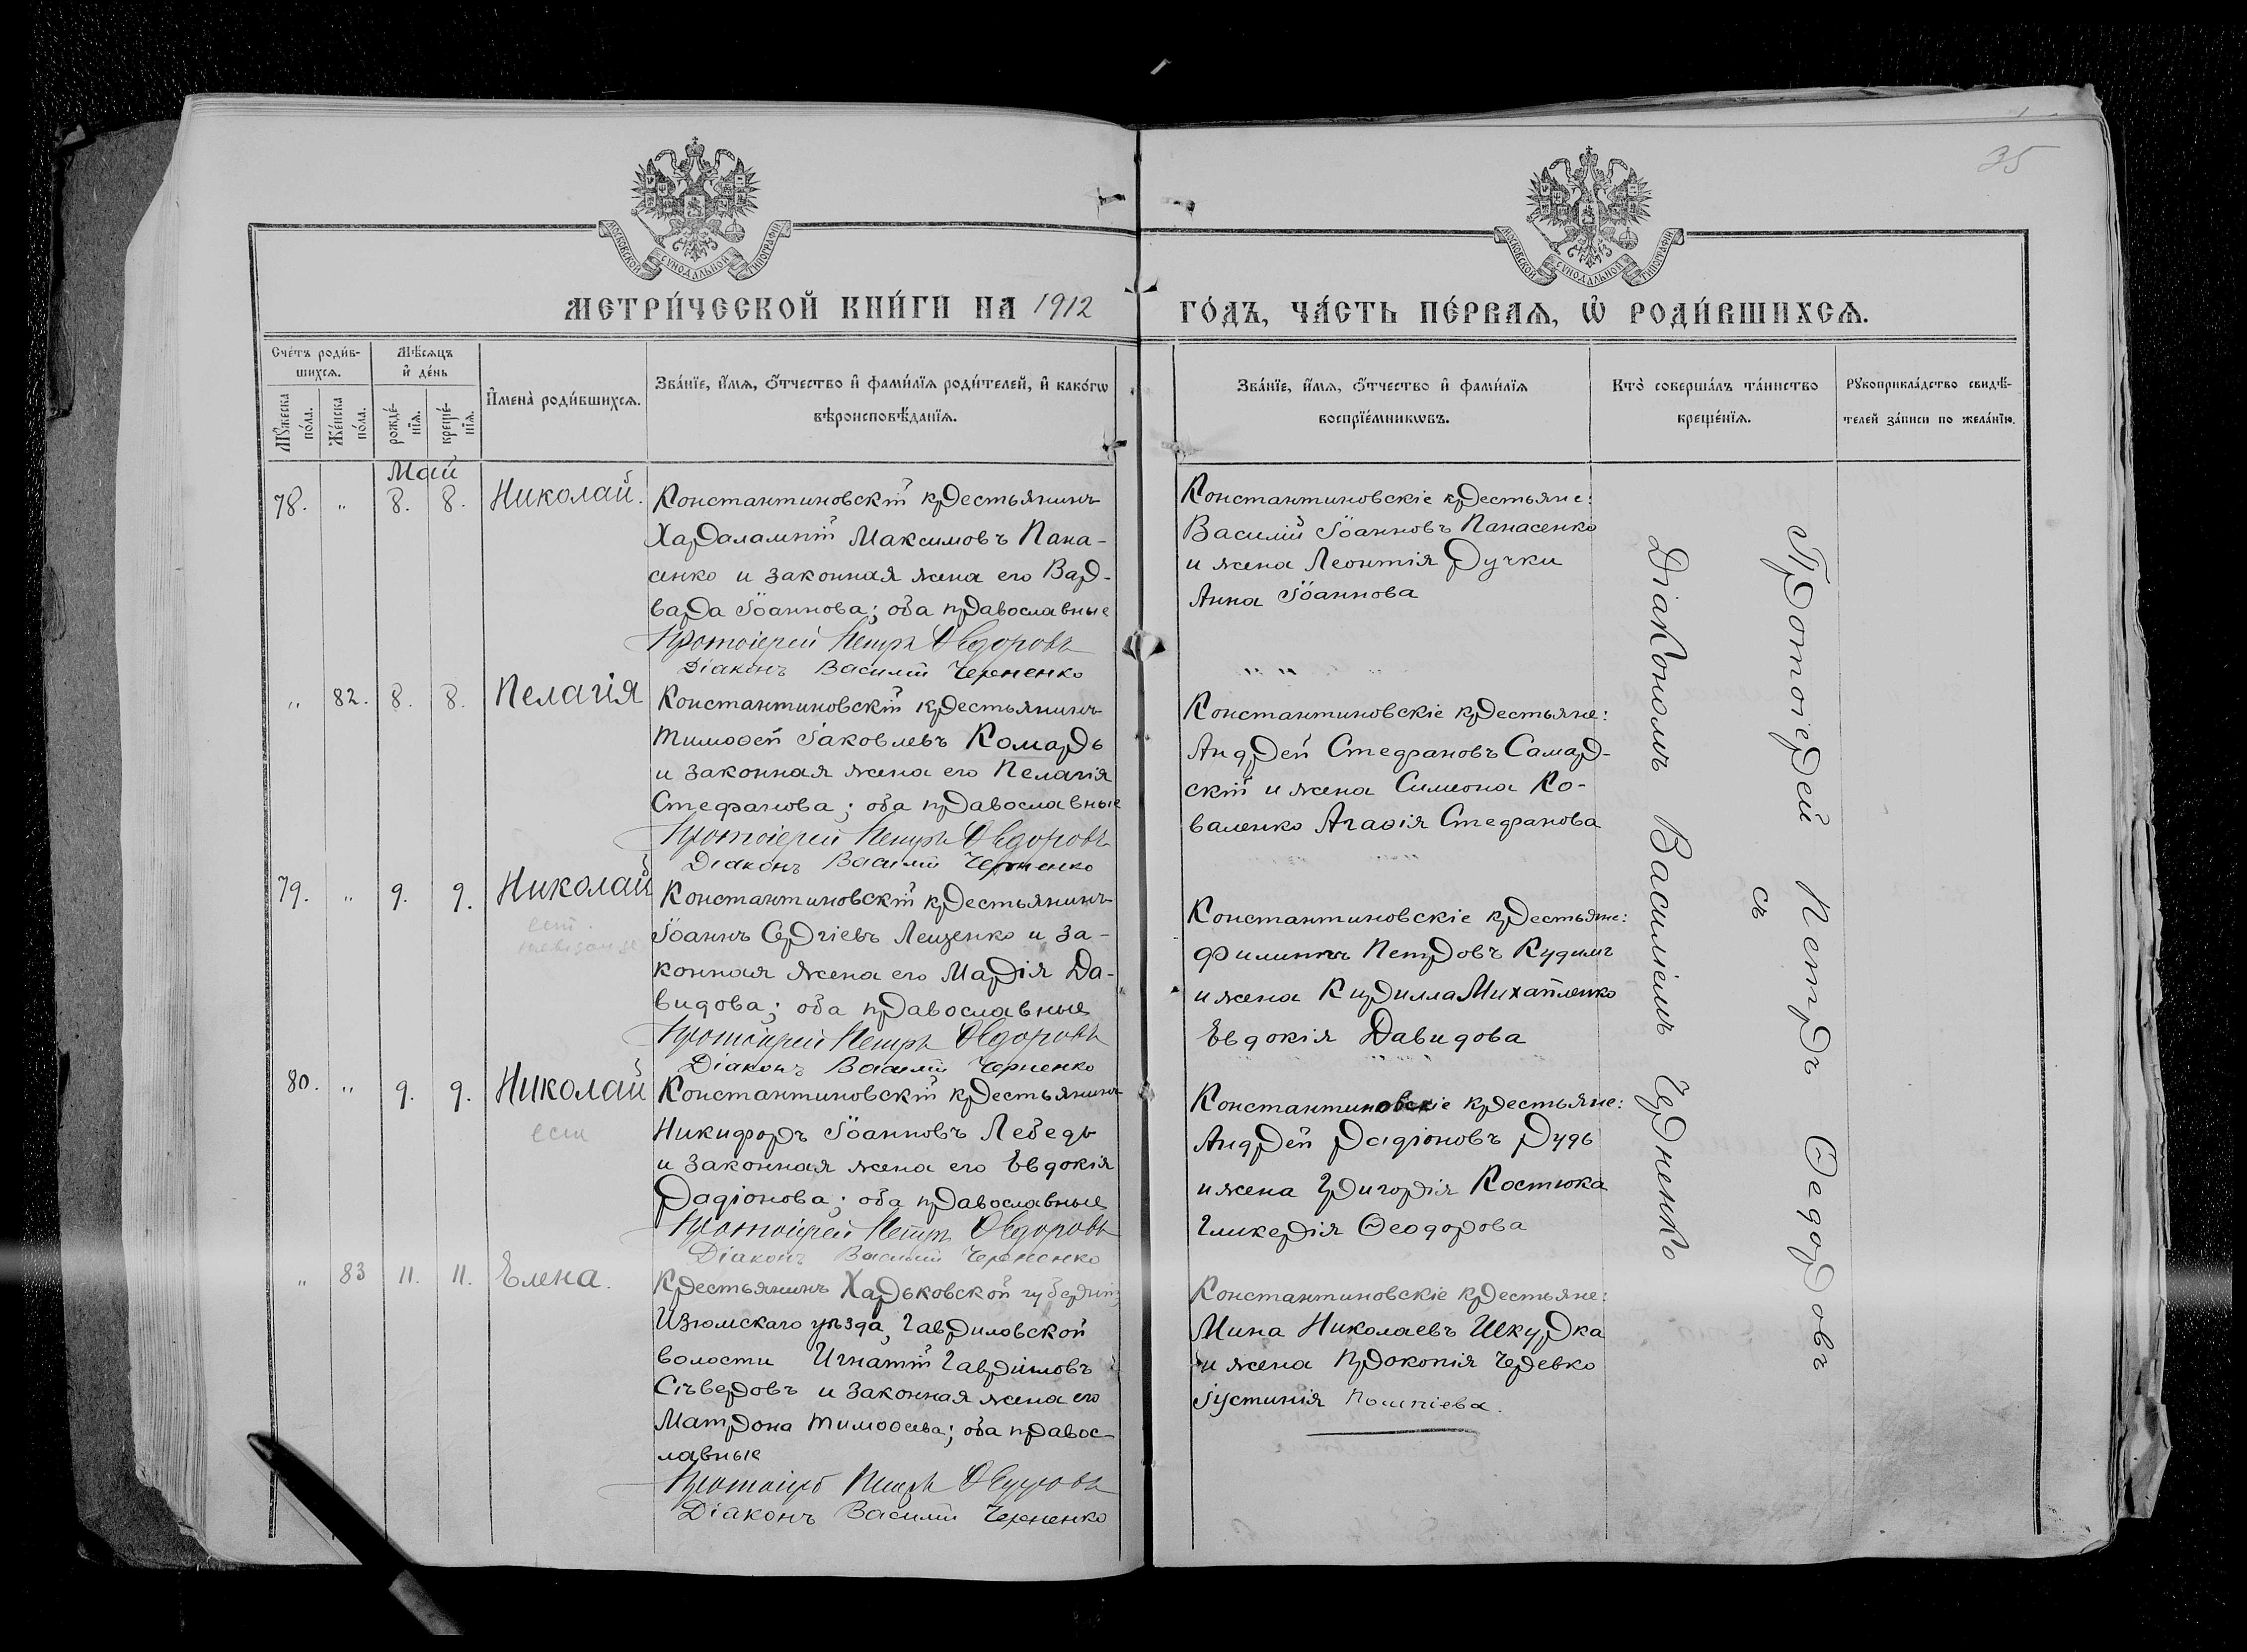 35
МОСКОВСКОЙ СѴНОДАЛЬНОЙ ТИПОГРАФІИ
МОСКОВСКОЙ СѴНОДАЛЬНОЙ ТИПОГРАФІИ
МЕТРИ́ЧЕСКОЙ КНИ́ГИ НА 1912
ГО́ДЪ, ЧА́СТЬ ПЕ́РВАѦ, Ѽ РОДИ́ВШИХСѦ.
Сче́тъ роди́в-
шихсѧ.
Мꙋ́жеска по́ла.
Же́нска по́ла.
Мѣ́сѧцъ
и҆ де́нь
рожде́-
нїѧ.
креще́-
нїѧ.
И҆мена̀ роди́вшихсѧ.
Зва́нїе, и҆́мѧ, ѻ҆́тчество и҆ фами́лїѧ роди́телей, и҆ како́гѡ
вѣроисповѣ́данїѧ.
Зва́нїе, и҆́мѧ, ѻ҆́тчество и҆ фами́лїѧ
воспрїе́мникѡвъ.
Кто̀ соверша́лъ та́инство
креще́нїѧ.
Рꙋкоприкла́дство свидѣ́-
телей за́писи по жела́нїю.
Май
78. " 8. 8. Николай.
Константиновскій крестьянинъ
Харалампій Максимовъ Пана-
сенко и законная жена его Вар-
вара Іоаннова; оба православные
Протоіерей Петръ Ѳедоровъ
Діаконъ Василій Черненко
Константиновскіе крестьяне:
Василій Іоанновъ Панасенко
и жена Леонтія Ручки
Анна Іоаннова
" 82. 8. 8. Пелагія
Константиновскій крестьянинъ
Тимоѳей Іаковлевъ Комарь
и законная жена его Пелагія
Стефанова; оба православные
Протоіерей Петръ Ѳедоровъ
Діаконъ Василій Черненко
Константиновскіе крестьяне:
Андрей Стефановъ Самар-
скій и жена Симеона Ко-
валенко Агаѳія Стефанова
79. " 9. 9. Николай
Константиновскій крестьянинъ
Іоаннъ Сергіевъ Лещенко и за-
конная жена его Марія Да-
видова; оба православные
Протоіерей Петръ Ѳедоровъ
Діаконъ Василій Черненко
Константиновскіе крестьяне:
Филиппъ Петровъ Кудимъ
и жена Кирилла Михайленко
Евдокія Давидова
80. " 9. 9. Николай
есть
Константиновскій крестьянинъ
Никифоръ Іоанновъ Лебедь
и законная жена его Евдокія
Радіонова; оба православные
Протоіерей Петръ Ѳедоровъ
Діаконъ Василій Черненко
Константиновскіе крестьяне:
Андрей Радіоновъ Рудь
и жена Григорія Костюка
Гликерія Ѳеодорова
" 83 11. 11. Елена.
Крестьянинъ Харьковской губерніи,
Изюмскаго уѣзда, Гавриловской
волости Игнатій Гавриловъ
Сѣверовъ и законная жена его
Матрона Тимоѳеева; оба правос-
лавные
Протоіерей Петръ Ѳедоровъ
Діаконъ Василій Черненко
Константиновскіе крестьяне:
Мина Николаевъ Шкурка
и жена Прокопія Черевко
Іустинія
Протоіерей Петръ Ѳедоровъ
съ
Діакономъ Василіемъ Черненко